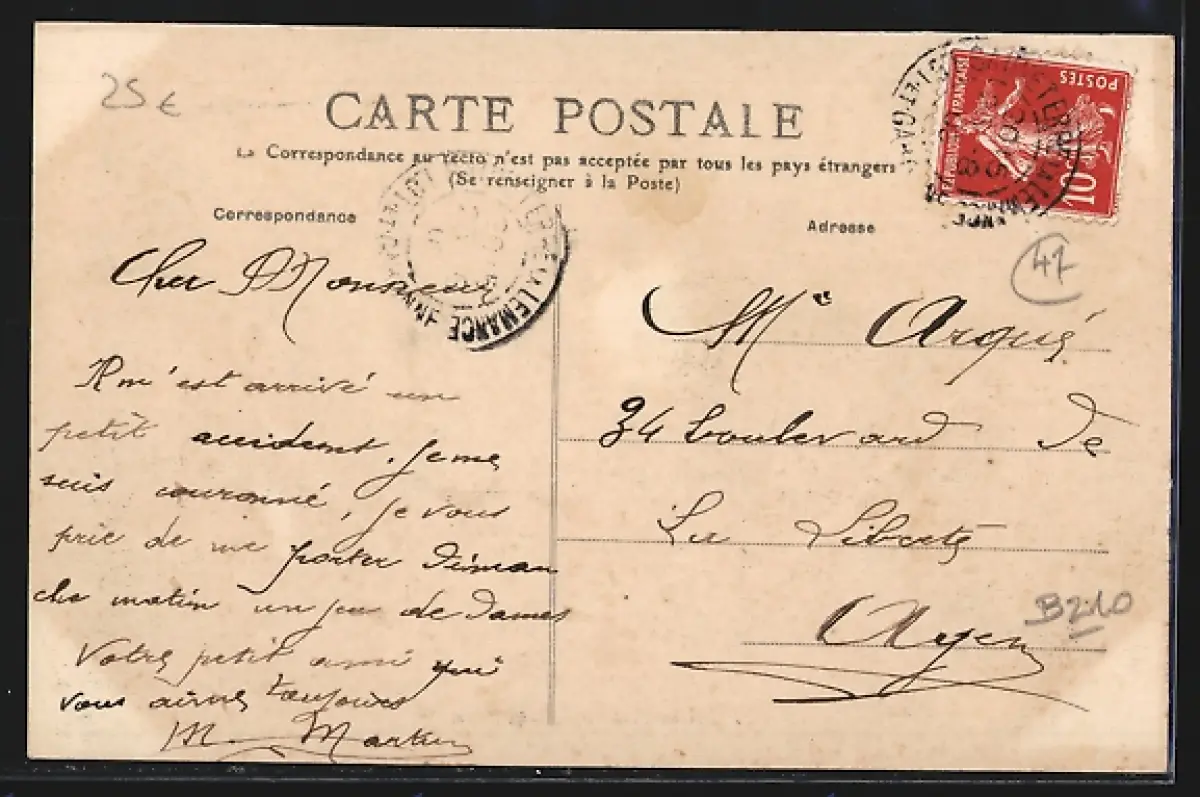 25 €
CARTE POSTALE
La Correspondance au recto n'est pas acceptée par tous les pays étrangers
(Se renseigner à la Poste)
Correspondance
Adresse
REPUBLIQUE FRANÇAISE
POSTES
10c
LOT-ET-GARONNE
LALLEMANCE
47
Cher Monsieur
Il m'est arrivé un
petit accident. Je me
suis couronné, je vous
prie de me porter Diman
che matin un jeu de Dames
Votre petit ami qui
vous aime toujours
M. Martin
Mr Arqué
34 boulevard de
La Liberté
Agen
B210